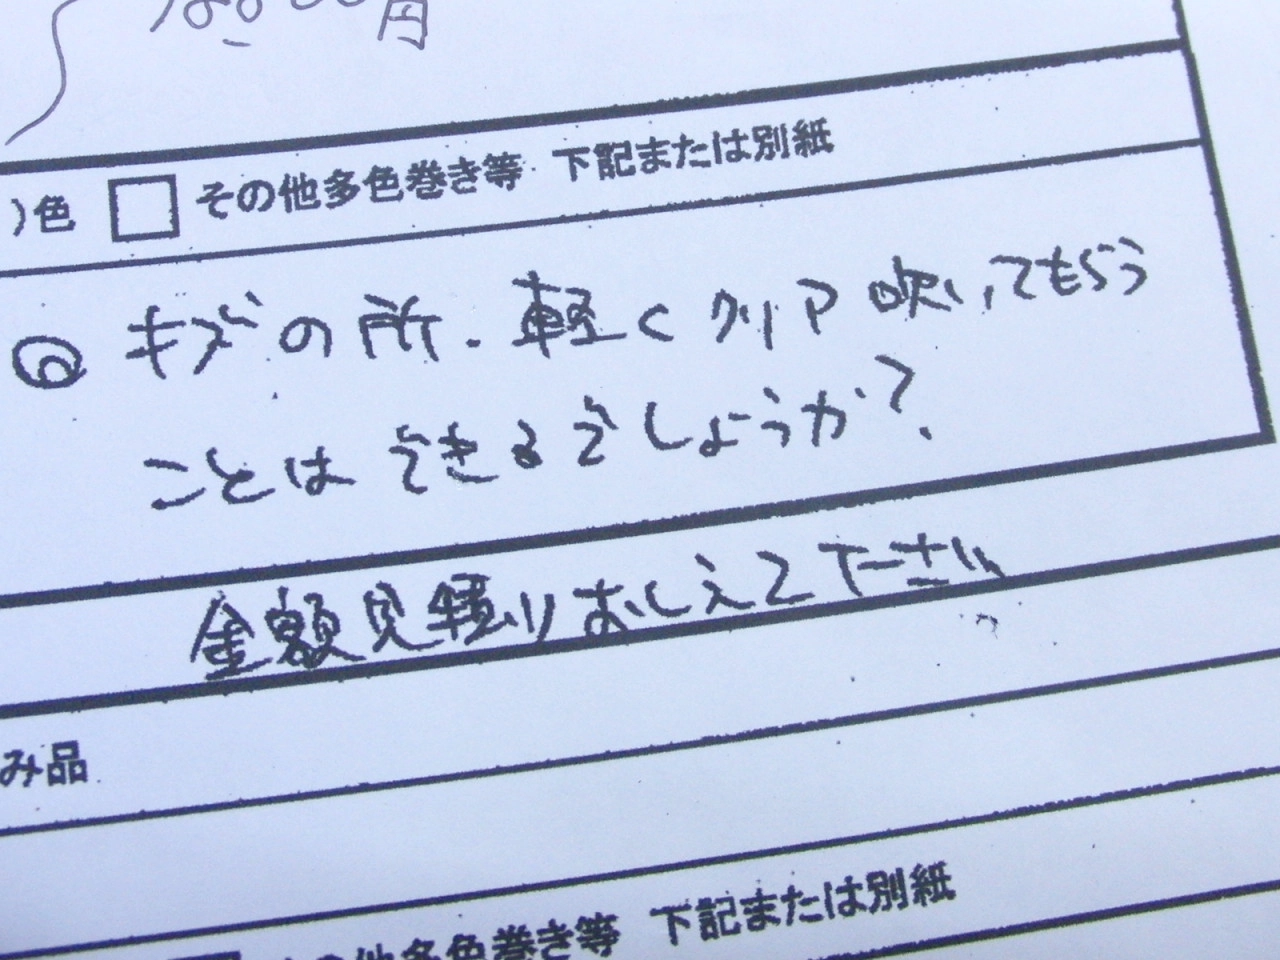 円
)色 □ その他多色巻き等 下記または別紙
◎ キズの所、軽くクリア吹いてもらう
ことはできるでしょうか?
金額見積りおしえて下さい
み品
の他多色巻き等 下記または別紙